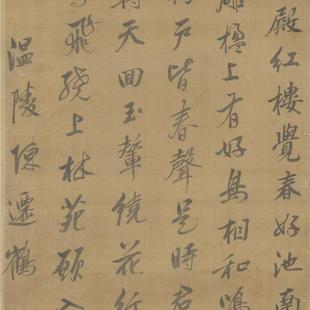 殿紅樓覺春好池南
雕楹上有好鳥相和鳴
戶皆春聲是時君
天回玉輦繞花行
飛繞上林苑願入
溫陵陳遷鶴